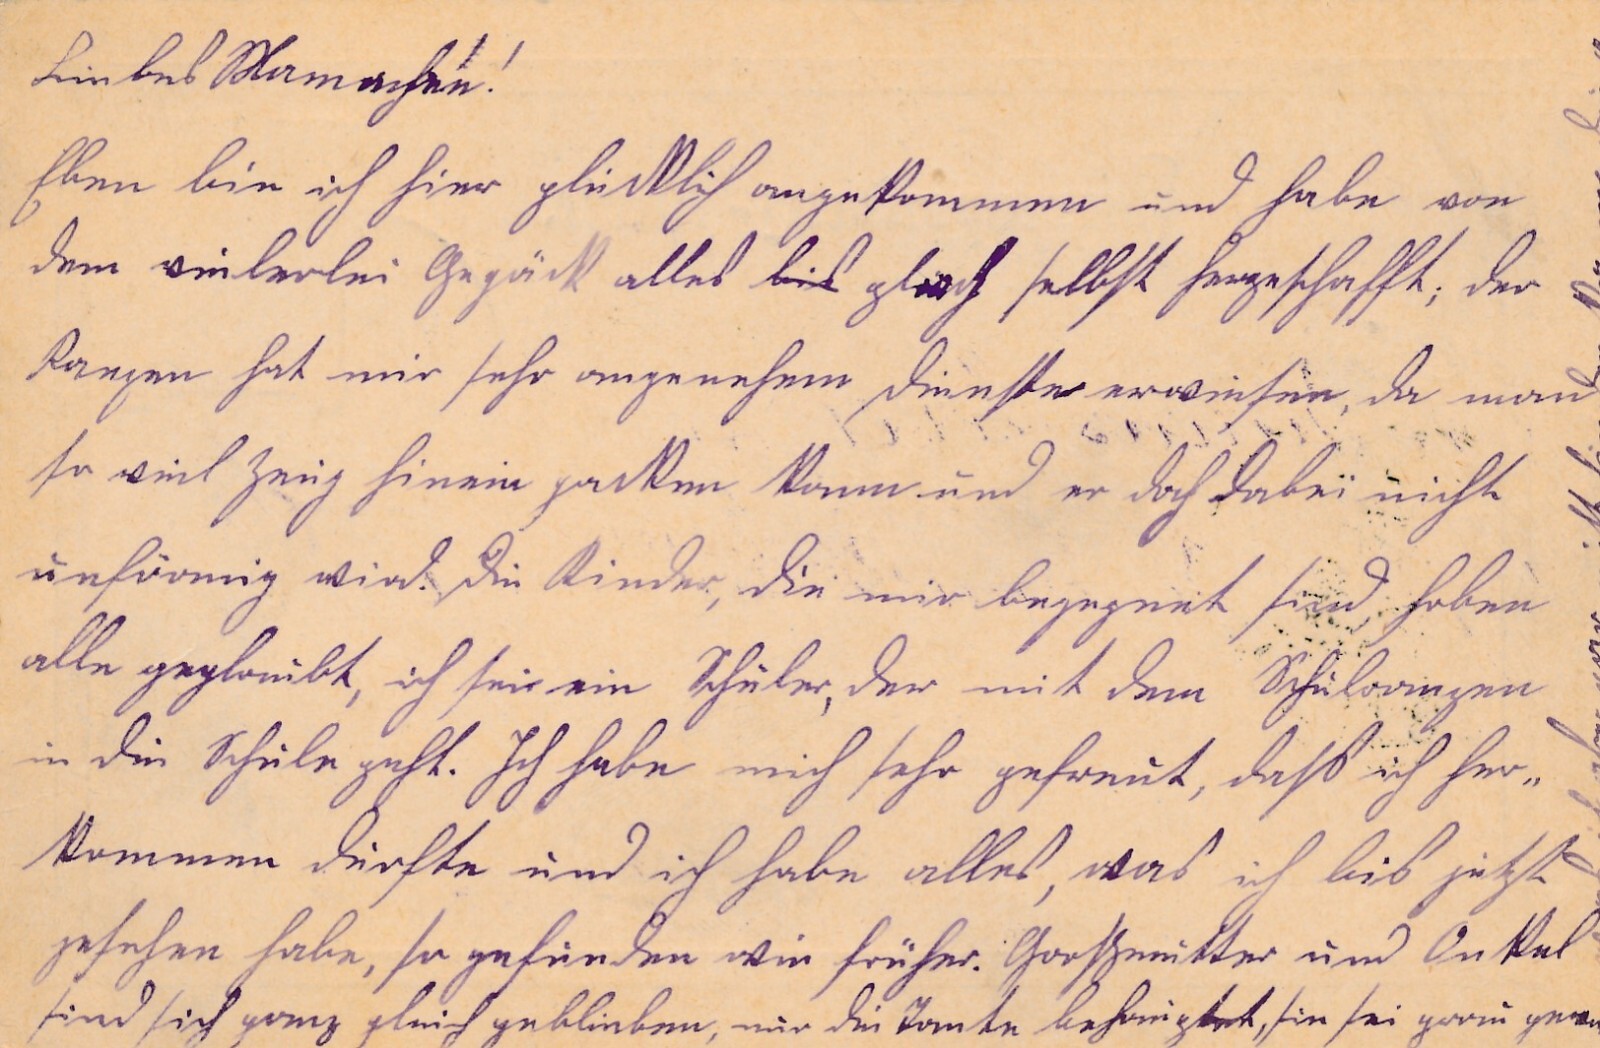 Liebes Mamachen!
Eben bin ich hier glücklich angekommen und habe von
dem vielerlei Gepäck alles bis gleich selbst hergeschafft; der
Ranzen hat mir sehr angenehem Dienste erwiesen, da man
so viel Zeug hinein packen kann und er doch dabei nicht
unförmig wird. Die Kinder, die mir begegnet sind haben
alle geglaubt, ich sei ein Schüler, der mit dem Schulranzen
in die Schule geht. Ich habe mich sehr gefreut, daß ich her„
kommen durfte und ich habe alles, was ich bis jetzt
gesehen habe, so gefunden wie früher. Großmutter und Onkel
sind sich ganz gleich geblieben, nur die Tante behauptet, sie sei grau